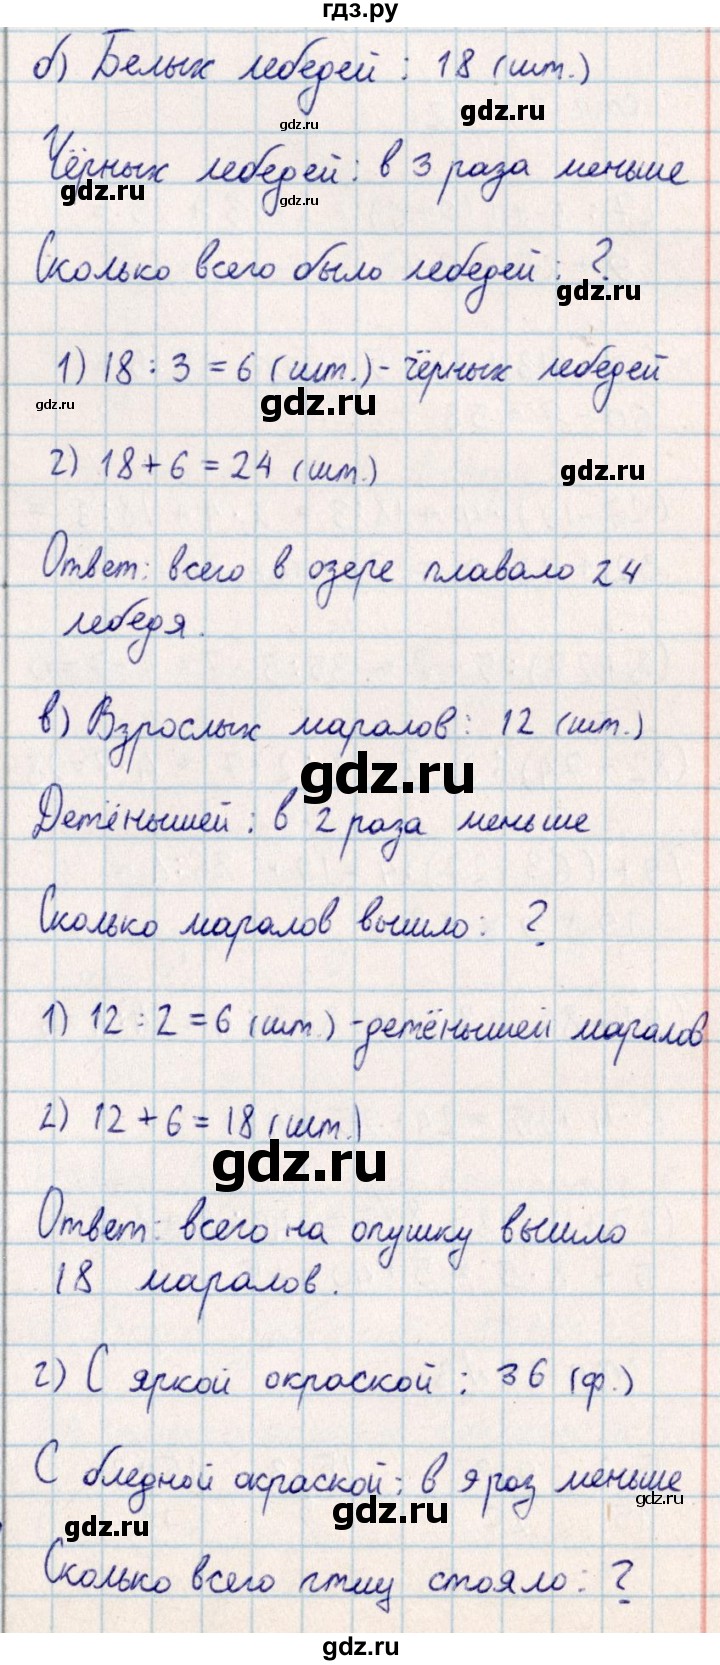 гдз.ру
б) Белых лебедей : 18 (шт.)
gdz.ru
gdz.ru
Чёрных лебедей : в 3 раза меньше
gdz.ru
gdz.ru
Сколько всего было лебедей : ?
gdz.ru
1) 18 : 3 = 6 (шт.) - чёрных лебедей
gdz.ru
gdz.ru
2) 18 + 6 = 24 (шт.)
gdz.ru
Ответ: всего в озере плавало 24
лебедя.
в) Взрослых маралов : 12 (шт.)
gdz.ru
Детёнышей : в 2 раза меньше
Сколько маралов вышло : ?
1) 12 : 2 = 6 (шт.) - детёнышей маралов
2) 12 + 6 = 18 (шт.)
gdz.ru
Ответ: всего на опушку вышло
18 маралов.
г) С яркой окраской : 36 (ф.)
С бледной окраской : в 9 раз меньше
gdz.ru
gdz.ru
gdz.ru
Сколько всего птиц стояло : ?
gdz.ru